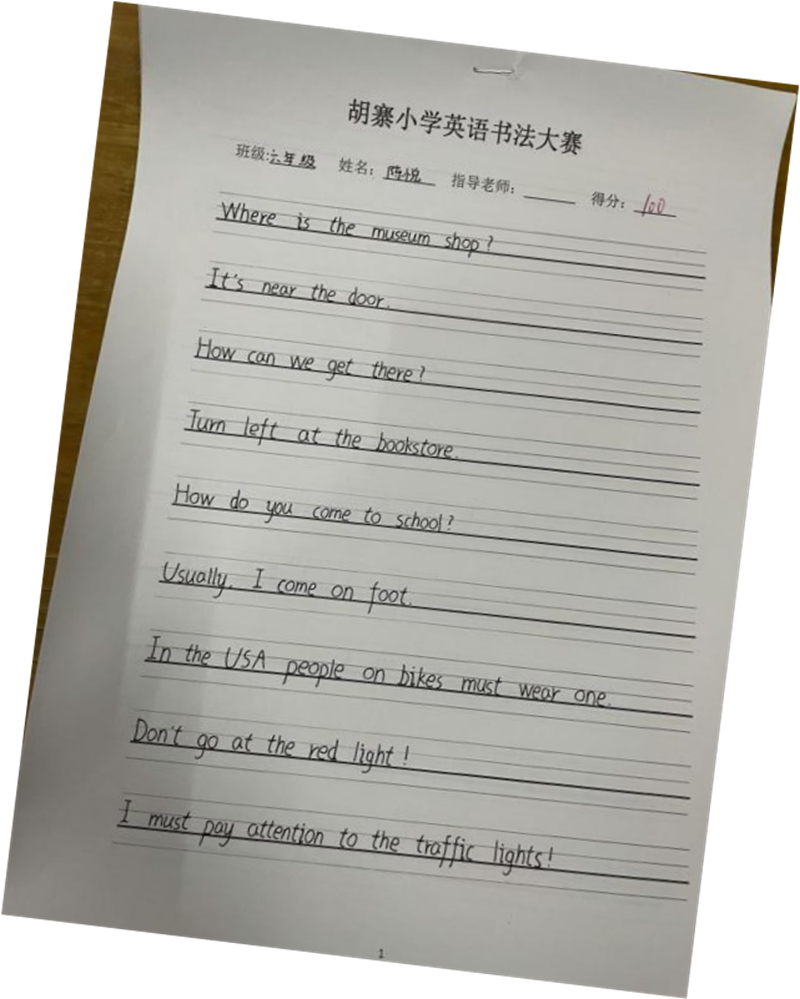 胡寨小学英语书法大赛
班级:六年级 姓名:陈悦 指导老师: 得分:100
Where is the museum shop?
It's near the door.
How can we get there?
Turn left at the bookstore.
How do you come to school?
Usually, I come on foot.
In the USA people on bikes must wear one.
Don't go at the red light!
I must pay attention to the traffic lights!
1